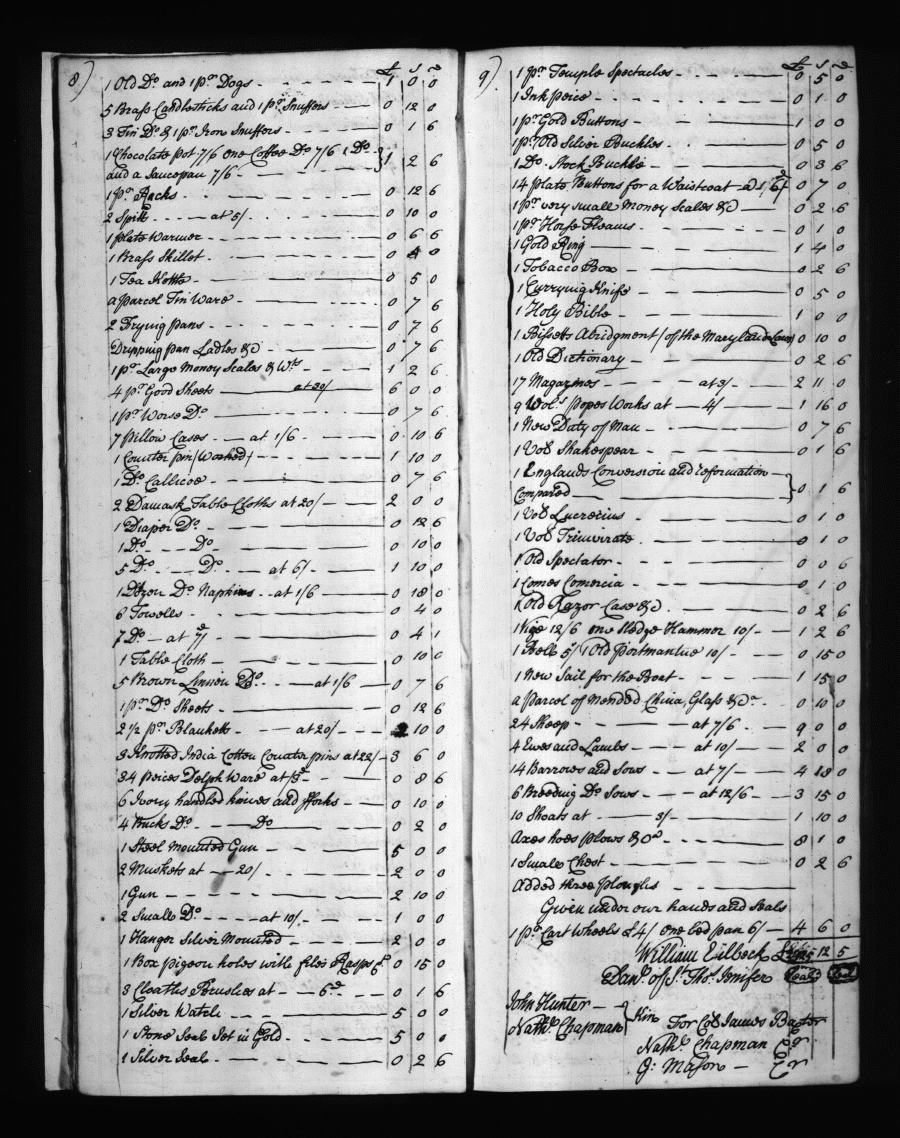 8)
£ s d
1 Old Do. and 1 pr. Dogs - 1 0 0
5 Brass Candlesticks and 1 pr. Snuffers - 0 12 0
3 Tin Do. & 1 pr. Iron Snuffers - 0 1 6
1 Chocolate pot 7/6 one Coffee Do. 7/6 1 Do.
and a Saucepan 7/6 - 1 2 6
1 pr. Racks - 0 12 6
2 Spitts - at 5/ - 0 10 0
1 plate Warmer - 0 6 6
1 Brass Skillet - 0 4 0
1 Tea Kettle - 0 5 0
a parcel Tin Ware - 0 7 6
2 Frying pans - 0 7 6
Dripping pan Ladles &c - 0 7 6
1 pr. Large Money Scales & Wts - 1 2 6
4 pr. Good Sheets - at 30/ 6 0 0
1 pr. Worse Do. - 0 7 6
7 Pillow Cases - at 1/6 - 0 10 6
1 Counter pin (Worked) - 1 10 0
1 Do. Callicoe - 0 7 6
2 Damask Table Cloths at 20/ - 2 0 0
1 Diaper Do. - 0 12 6
1 Do. - Do. - 0 10 0
5 Do. - Do. - at 6/ - 1 10 0
1 Dozen Do. Napkins - at 1/6 0 18 0
6 Towells - 0 4 0
7 Do. - at 7d - 0 4 1
1 Table Cloth - 0 10 0
5 Brown Linnen Do. - at 1/6 - 0 7 6
1 pr. Do. Sheets - 0 12 6
2 1/2 pr. Blanketts - at 20/ - 2 10 0
3 Knotted India Cotton Counter pins at 22/ - 3 6 0
34 peices Delph Ware at /3d - 0 8 6
6 Ivory handled knives and fforks - 0 10 0
4 Bucks Do. - Do. - 0 2 0
1 Steel mounted Gun - 5 0 0
2 Muskets at - 20/ - 2 0 0
1 Gun - 2 10 0
2 Small Do. - at 10/ - 1 0 0
1 Hanger Silver Mounted - 2 0 0
1 Box pigeon holes with files Rasps &c 0 15 0
3 Cloaths Brushes at - 6d - 0 1 6
1 Silver Watch - 5 0 0
1 Stone Seal Set in Gold - 5 0 0
1 Silver Seal - 0 2 6
9)
£ s d
1 pr. Temple Spectacles - 0 5 0
1 Ink peice - 0 1 0
1 pr. Gold Buttons - 1 0 0
1 pr. Old Silver Buckles - 0 5 0
1 Do. Stock Buckle - 0 3 6
14 plate Buttons for a Waistcoat at /6d 0 7 0
1 pr. very small Money Scales &c 0 2 6
1 pr. Horse Fleams - 0 1 0
1 Gold Ring - 1 4 0
1 Tobacco Box - 0 2 6
1 Currying Knife - 0 5 0
1 Holy Bible - 1 0 0
1 Bissetts Abridgment (of the Maryland Laws) 0 10 0
1 Old Dictionary - 0 2 6
17 Magazines - at 3/ - 2 11 0
9 Vols. Popes Works at - 4/ - 1 16 0
1 New Duty of Man - 0 7 6
1 Vol Shakespear - 0 1 6
1 Englands Conversion and reformation
Compared - 0 1 6
1 Vol Lucretius - 0 1 0
1 Vol Triumvirate - 0 1 0
1 Old Spectator - 0 0 6
1 Comes Comercia - 0 1 0
1 Old Razor Case &c - 0 2 6
1 Vice 12/6 one Sledge Hammer 10/ - 1 2 6
1 Bell 5/ 1 Old portmantue 10/ - 0 15 0
1 New Sail for the Boat - 1 15 0
a parcel of Mended China, Glass &ca - 0 10 0
24 Sheep - at 7/6 - 9 0 0
4 Ewes and Lambs - at 10/ - 2 0 0
14 Barrows and Sows - at 7/ - 4 18 0
6 Breeding Do. Sows - at 12/6 - 3 15 0
10 Shoats at - 3/ - 1 10 0
Axes hoes plows &ca - 8 1 0
1 Small Chest - 0 2 6
Added three Ploughs -
Given under our hands and Seals
1 pr. Cart Wheels £4/ one bed pan 6/ - 4 6 0
William Eilbeck 12 5
Danl. of St. Thos. Jenifer (Seal) (Seal)
John Hunter -
Nathl. Chapman } Kin For Col James Baxter
Nathl. Chapman Exr
G: Mason - Exr